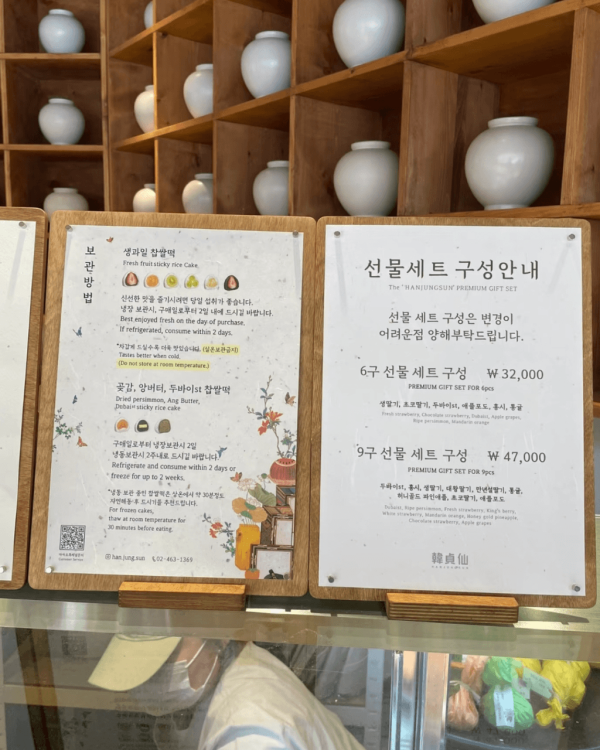 보관방법
생과일 찹쌀떡
Fresh fruit sticky rice Cake
신선한 맛을 즐기시려면 당일 섭취가 좋습니다.
냉장 보관시, 구매일로부터 2일 내에 드시길 바랍니다.
Best enjoyed fresh on the day of purchase.
If refrigerated, consume within 2 days.
*차갑게 드실수록 더욱 맛있습니다. (실온보관금지)
Tastes better when cold.
(Do not store at room temperature.)
곶감, 앙버터, 두바이st 찹쌀떡
Dried persimmon, Ang Butter,
Dubai st sticky rice cake
구매일로부터 냉장보관시 2일
냉동보관시 2주내로 드시길 바랍니다.
Refrigerate and consume within 2 days or
freeze for up to 2 weeks.
*냉동 보관 중인 찹쌀떡은 실온에서 약 30분정도
자연해동 후 드시기를 추천드립니다.
For frozen cakes,
thaw at room temperature for
30 minutes before eating.
han.jung.sun 02-463-1369
선물세트 구성안내
The "HANJUNGSUN" PREMIUM GIFT SET
선물 세트 구성은 변경이
어려운점 양해부탁드립니다.
6구 선물 세트 구성 ₩ 32,000
PREMIUM GIFT SET FOR 6pcs
생딸기, 초코딸기, 두바이st, 애플포도, 홍시, 통귤
Fresh strawberry, Chocolate strawberry, Dubaist, Apple grapes,
Ripe persimmon, Mandarin orange
9구 선물 세트 구성 ₩ 47,000
PREMIUM GIFT SET FOR 9pcs
두바이st, 홍시, 생딸기, 대왕딸기, 만년설딸기, 통귤,
허니골드 파인애플, 초코딸기, 애플포도
Dubaist, Ripe persimmon, Fresh strawberry, King's berry,
White strawberry, Mandarin orange, Honey gold pineapple,
Chocolate strawberry, Apple grapes
韓貞仙